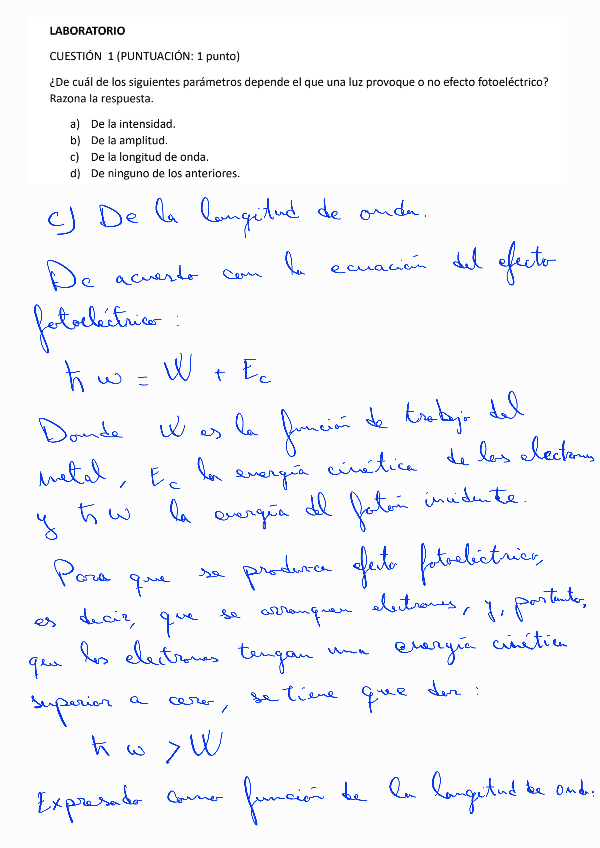 LABORATORIO
CUESTIÓN 1 (PUNTUACIÓN: 1 punto)
¿De cuál de los siguientes parámetros depende el que una luz provoque o no efecto fotoeléctrico?
Razona la respuesta.
a) De la intensidad.
b) De la amplitud.
c) De la longitud de onda.
d) De ninguno de los anteriores.
c) De la longitud de onda.
De acuerdo con la ecuación del efecto
fotoeléctrico:
ħ ω = W + Ec
Donde W es la función de trabajo del
metal, Ec la energía cinética de los electrones
y ħ ω la energía del fotón incidente.
Para que se produzca efecto fotoeléctrico,
es decir, que se arranquen electrones, y, portanto,
que los electrones tengan una energía cinética
superior a cero, se tiene que dar:
ħ ω > W
Expresado como función de la longitud de onda: